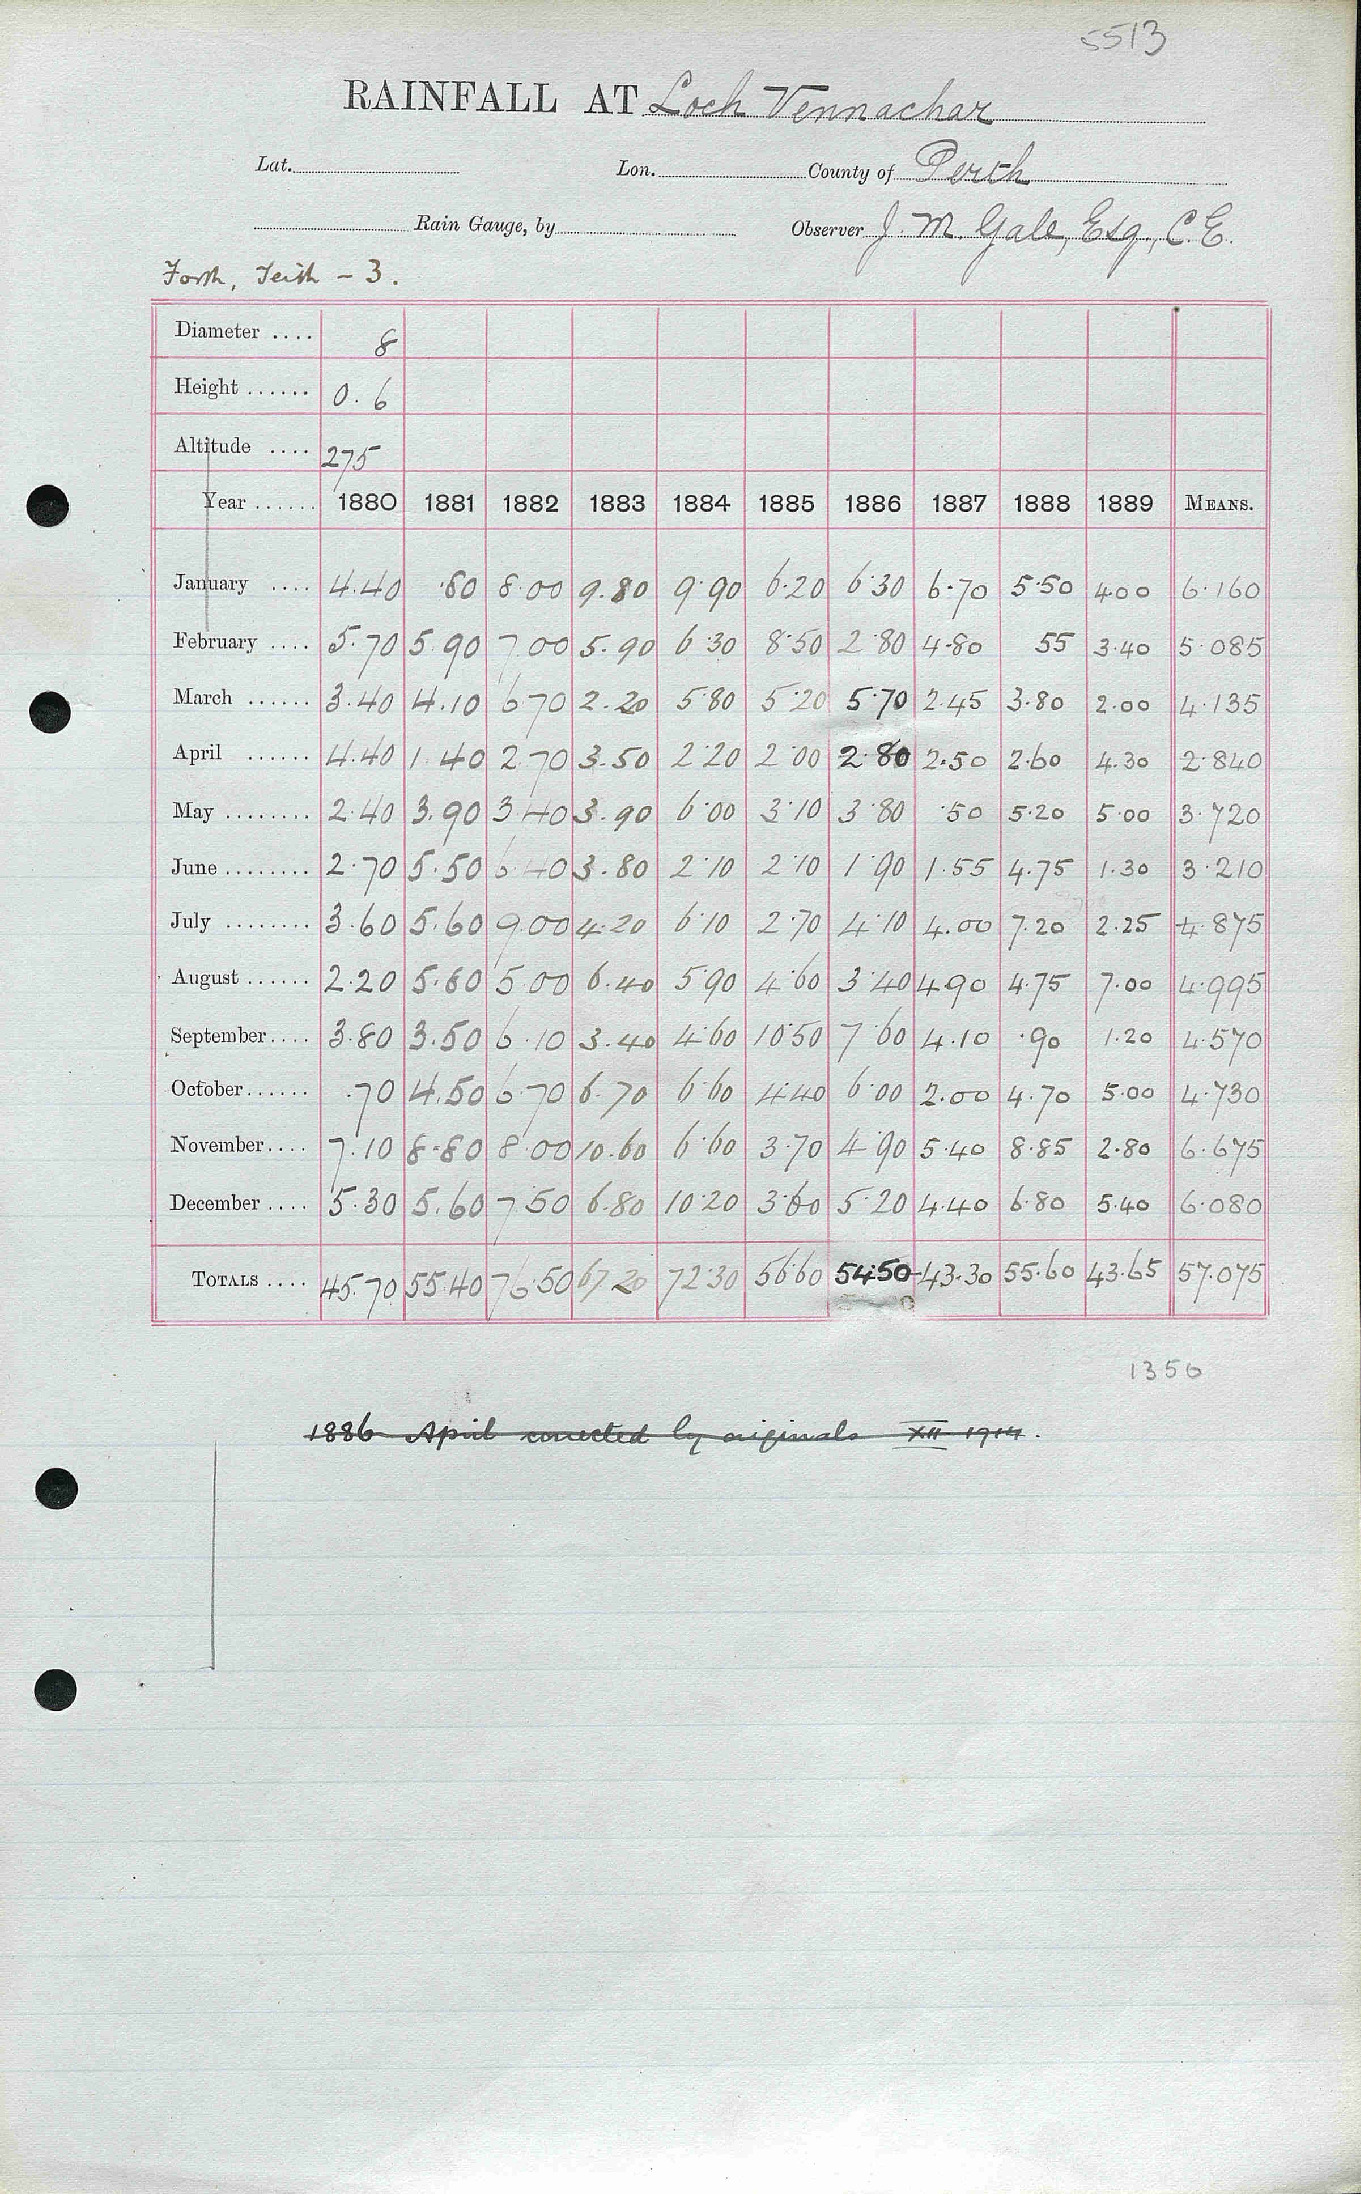 5513
RAINFALL AT Loch Vennachar
Lat. Lon. County of Perth
Rain Gauge, by Observer J. M. Gale, Esq., C.E.
Forth, Teith - 3.
Diameter .... 8
Height ...... 0.6
Altitude .... 275
Year ...... 1880 1881 1882 1883 1884 1885 1886 1887 1888 1889 MEANS.
January .... 4.40 .80 8.00 9.80 9.90 6.20 6.30 6.70 5.50 4 00 6.160
February .... 5.70 5.90 7.00 5.90 6.30 8.50 2.80 4.80 55 3.40 5.085
March ...... 3.40 4.10 6.70 2.20 5.80 5.20 5.70 2.45 3.80 2.00 4.135
April ...... 4.40 1.40 2.70 3.50 2.20 2.00 2.80 2.50 2.60 4.30 2.840
May ........ 2.40 3.90 3.40 3.90 6.00 3.10 3.80 .50 5.20 5.00 3.720
June ........ 2.70 5.50 6.40 3.80 2.10 2.10 1.90 1.55 4.75 1.30 3.210
July ........ 3.60 5.60 9.00 4.20 6.10 2.70 4.10 4.00 7.20 2.25 4.875
August ...... 2.20 5.80 5.00 6.40 5.90 4.60 3.40 4.90 4.75 7.00 4.995
September.... 3.80 3.50 6.10 3.40 4.60 10.50 7.60 4.10 .90 1.20 4.570
October...... .70 4.50 6.70 6.70 6.60 4.40 6.00 2.00 4.70 5.00 4.730
November.... 7.10 8.80 8.00 10.60 6.60 3.70 4.90 5.40 8.85 2.80 6.675
December .... 5.30 5.60 7.50 6.80 10.20 3.60 5.20 4.40 6.80 5.40 6.080
TOTALS .... 45.70 55.40 76.50 67.20 72.30 56.60 54.50 43.30 55.60 43.65 57.075
1356
1886 April corrected by originals XII 1914.